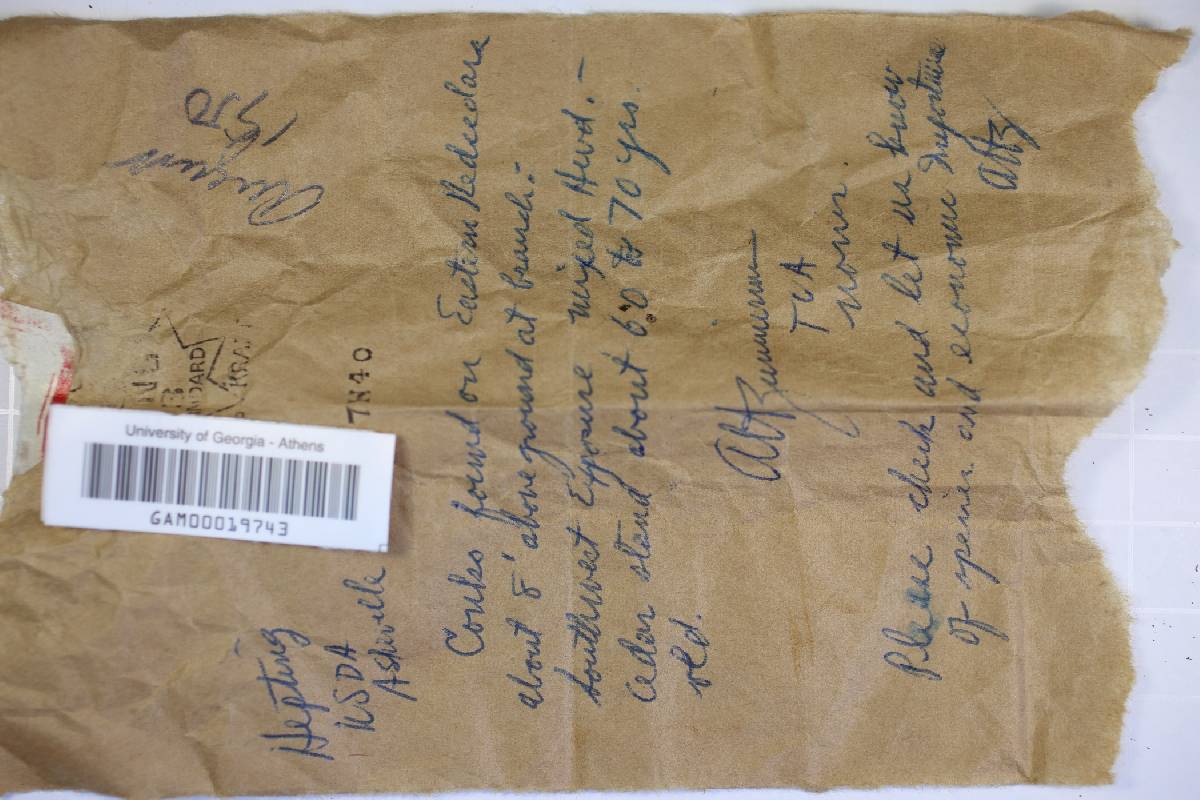 Hepting
USDA
Asheville
August
1950
DARD
KRA
7N40
University of Georgia - Athens
GAM00019743
Conks found on Eastern Redcedara
about 8' above ground at branch:-
Southwest Exposure mixed Hwd. -
Cedar stand about 60 to 70 yrs.
old.
TVA
Norris
Please check and let us know
of species and economic importance